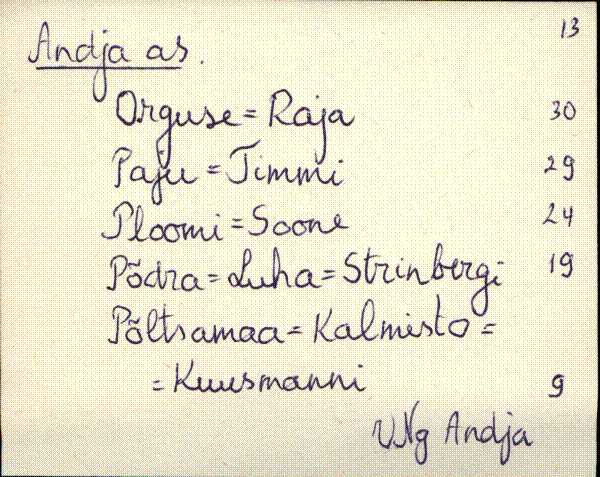 13
Andja as.
Orguse = Raja 30
Paju = Timmi 29
Ploomi = Soone 24
Põdra = Luha = Strinbergi 19
Põltsamaa = Kalmisto =
= Kuusmanni 9
V.Ng Andja